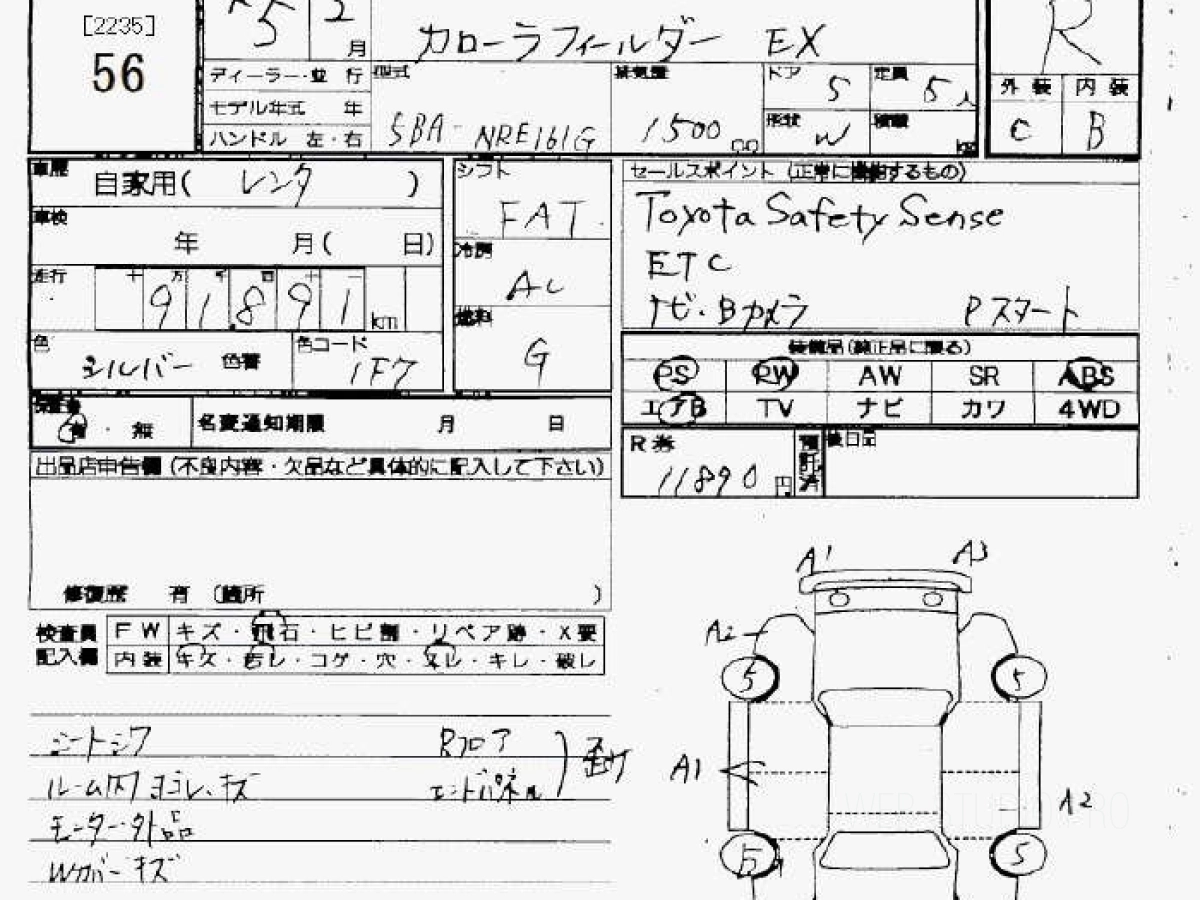 [2235]
56
5 2 月
カローラフィールダー EX
R
ディーラー・並 行
モデル年式 年
ハンドル 左・右
型式
SBA-NRE161G
排気量
1500 cc
ドア 5
定員 5人
形状 W
積載
kg
外 装 内 装
C B
車歴
自家用( レンタ )
車検
年 月( 日)
走行 十 万 千 百 十 一
91,891 km
色
シルバー 色替
色コード
1F7
シフト
FAT
冷房
AC
燃料
G
セールスポイント (正常に機能するもの)
Toyota Safety Sense
ETC
ナビ・Bカメラ Pスタート
装備品(純正品に限る)
PS PW AW SR ABS
エアB TV ナビ カワ 4WD
保証書
有 ・ 無
名変通知期限 月 日
R券
11890 円
預託済
後日品
出品店申告欄(不良内容・欠品など具体的に記入して下さい)
修復歴 有 (箇所 )
検査員
記入欄
FW キズ・飛石・ヒビ割・リペア跡・X要
内装 キズ・汚レ・コゲ・穴・スレ・キレ・破レ
シートシワ
ルーム内ヨゴレ、キズ
モーター外品
Wカバーキズ
Rフロア
エンドパネル
歪ケ
A1 A3
A2
5 5
A1
A2
5 5